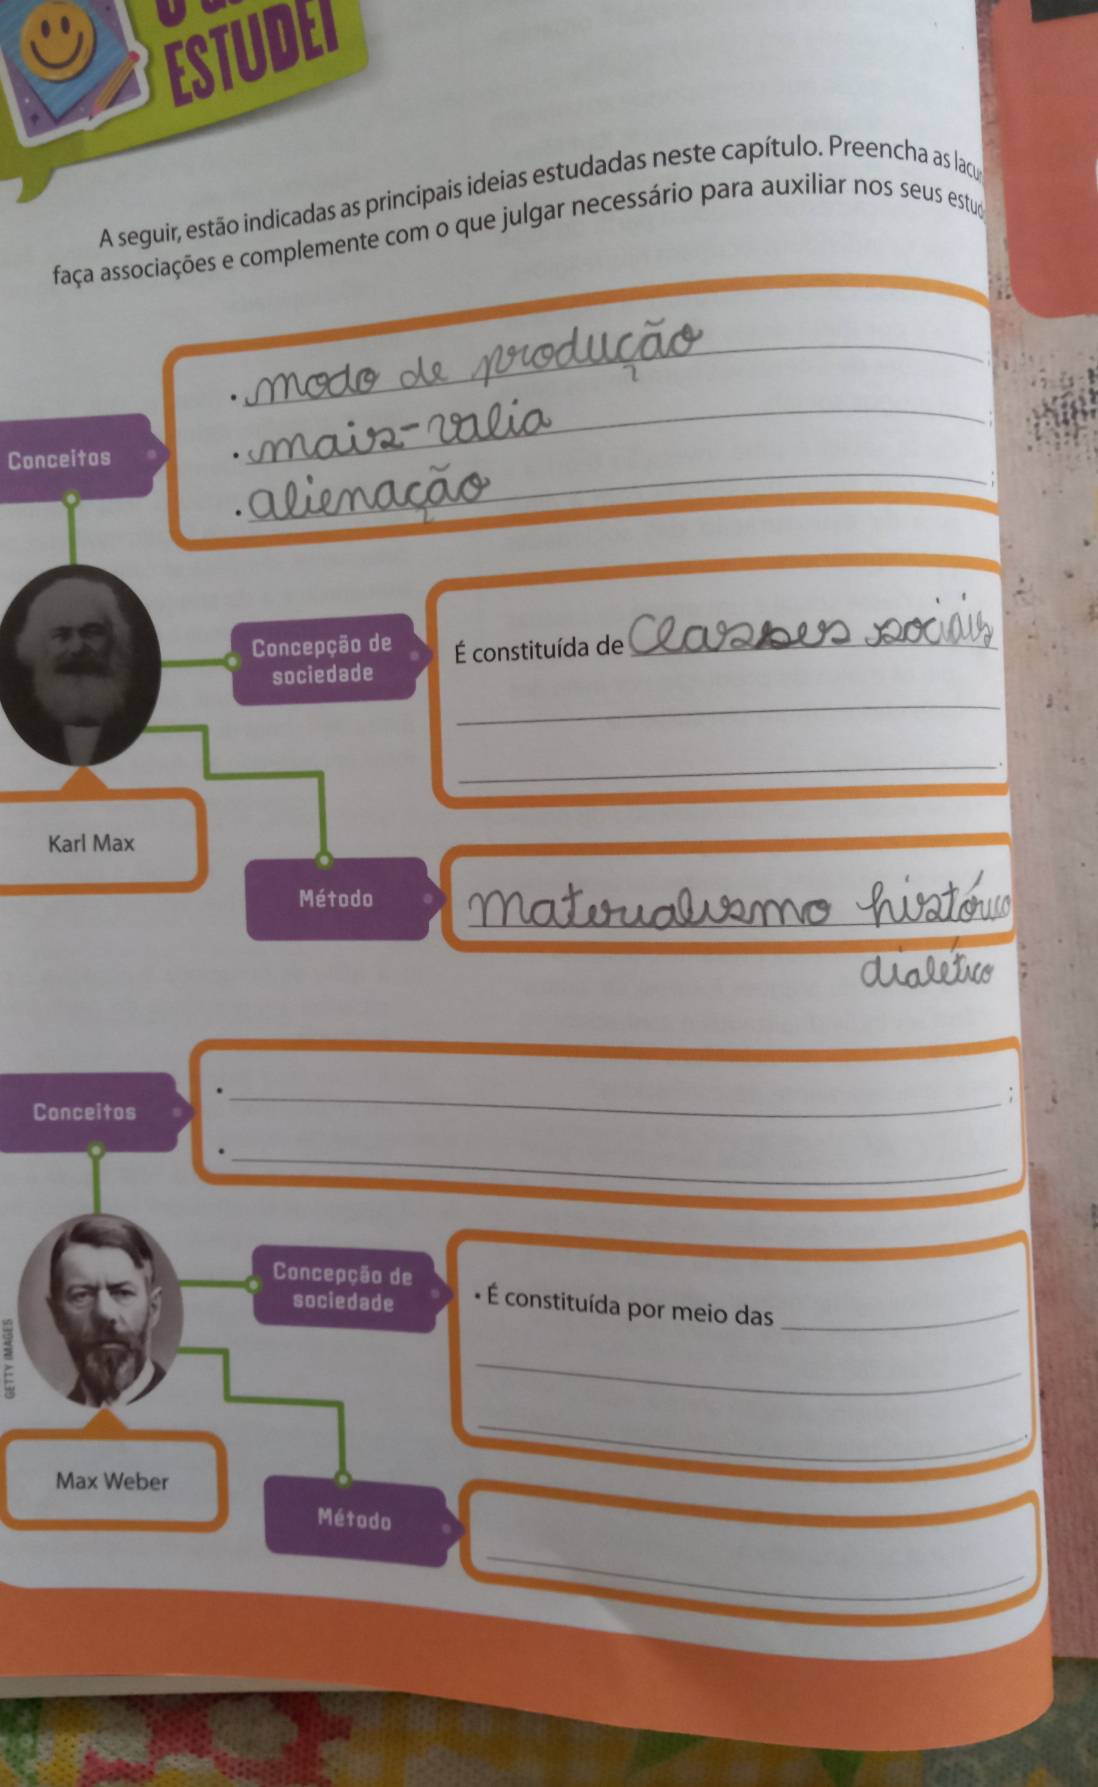 ESTUDEI
A seguir, estão indicadas as principais ideias estudadas neste capítulo. Preencha as
faça associações e complemente com o que julgar necessário para auxiliar nos seus
Conceitos
. modo de produção
. mais-valia ;
. alienação ;
Concepção de
sociedade
É constituída de classes sociais
.
Karl Max
Método
materialismo histórico
dialético
Conceitos
• ;
•
Concepção de
sociedade
• É constituída por meio das
.
GETTY IMAGES
Max Weber
Método